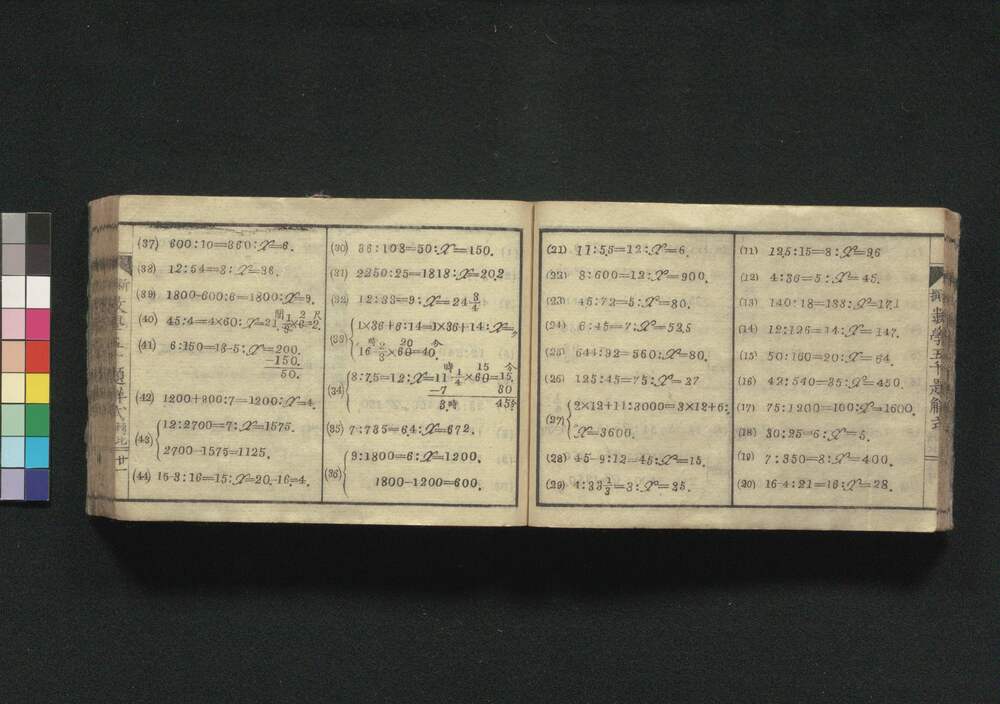 (11) 125:15=8:x=96
(12) 4:36=5:x=45.
(13) 140:18=133:x=171
(14) 12:126=14:x=147.
(15) 50:160=20:x=64.
(16) 42:540=35:x=450.
(17) 75:1200=100:x=1600.
(18) 30:25=6:x=5.
(19) 7:350=8:x=400.
(20) 16-4:21=16:x=28.
(21) 11:55=12:x=6.
(22) 8:600=12:x=900.
(23) 45:72=5:x=80.
(24) 6:45=7:x=52,5
(25) 644:92=560:x=80.
(26) 125:45=75:x=27
(27) 2×12+11:3000=3×12+6:
x=3600.
(28) 45-9:12=45:x=15.
(29) 4:33 1/3=3:x=25.
(30) 36:108=50:x=150.
(31) 2250:25=1818:x=20,2
(32) 12:33=9:x=24 3/4
(33) 1×36+6:14=1×36+14:x=
16 時 2/3×60=40. 20 分
(34) 8:7,5=12:x=11 時 1/4×60=15. 15 分
-7 30
3時 45分
(35) 7:735=6,4:x=672.
(36) 9:1800=6:x=1200.
1800-1200=600.
(37) 600:10=360:x=6.
(38) 12:54=8:x=36.
(39) 1800-600:6=1800:x=9.
(40) 45:4=4×60:x=21 間 1/3×6=2. 2 尺
(41) 6:150=13-5:x=200.
-150.
50.
(42) 1200+900:7=1200:x=4.
(43) 12:2700=7:x=1575.
2700-1575=1125.
(44) 15-3:16=15:x=20-16=4.